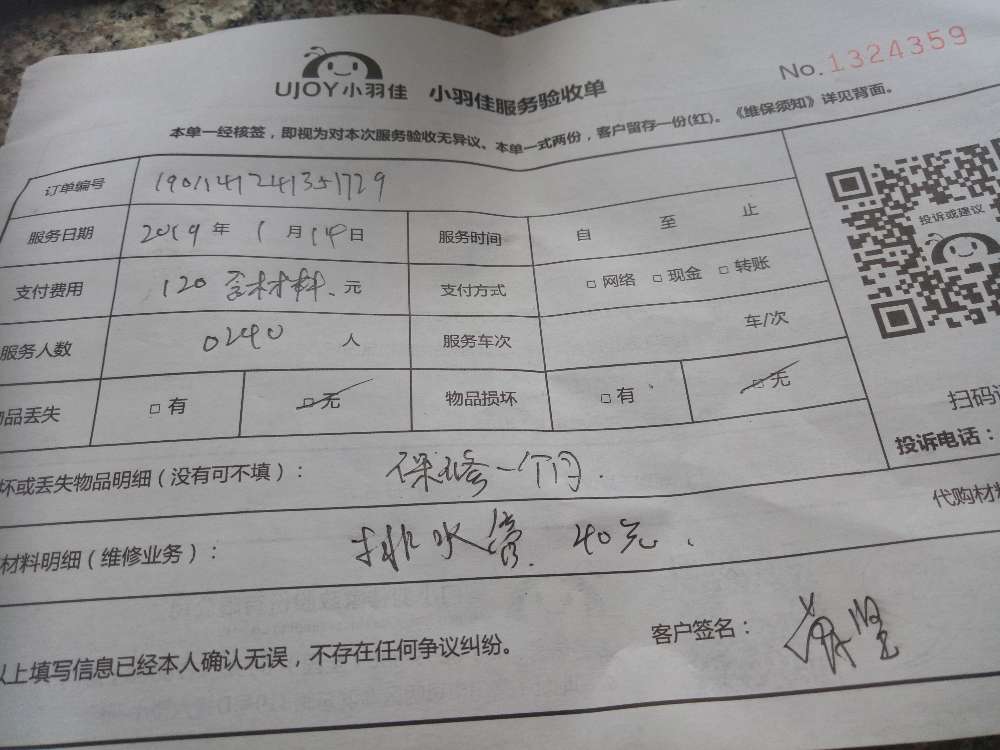 UJOY小羽佳 小羽佳服务验收单
No.1324359
本单一经核签，即视为对本次服务验收无异议、本单一式两份，客户留存一份(红)。《维保须知》详见背面。
订单编号
服务日期 2019年1月14日 服务时间 自 至 止
支付费用 120含材料、元 支付方式 □网络 □现金 □转账
服务人数 0240 人 服务车次 车/次
品丢失 □有 □无 物品损坏 □有 □无
投诉或建议
扫码
坏或丢失物品明细（没有可不填）： 保修一个月.
投诉电话：
材料明细（维修业务）： 排水管. 40元.
代购材
以上填写信息已经本人确认无误，不存在任何争议纠纷。
客户签名：